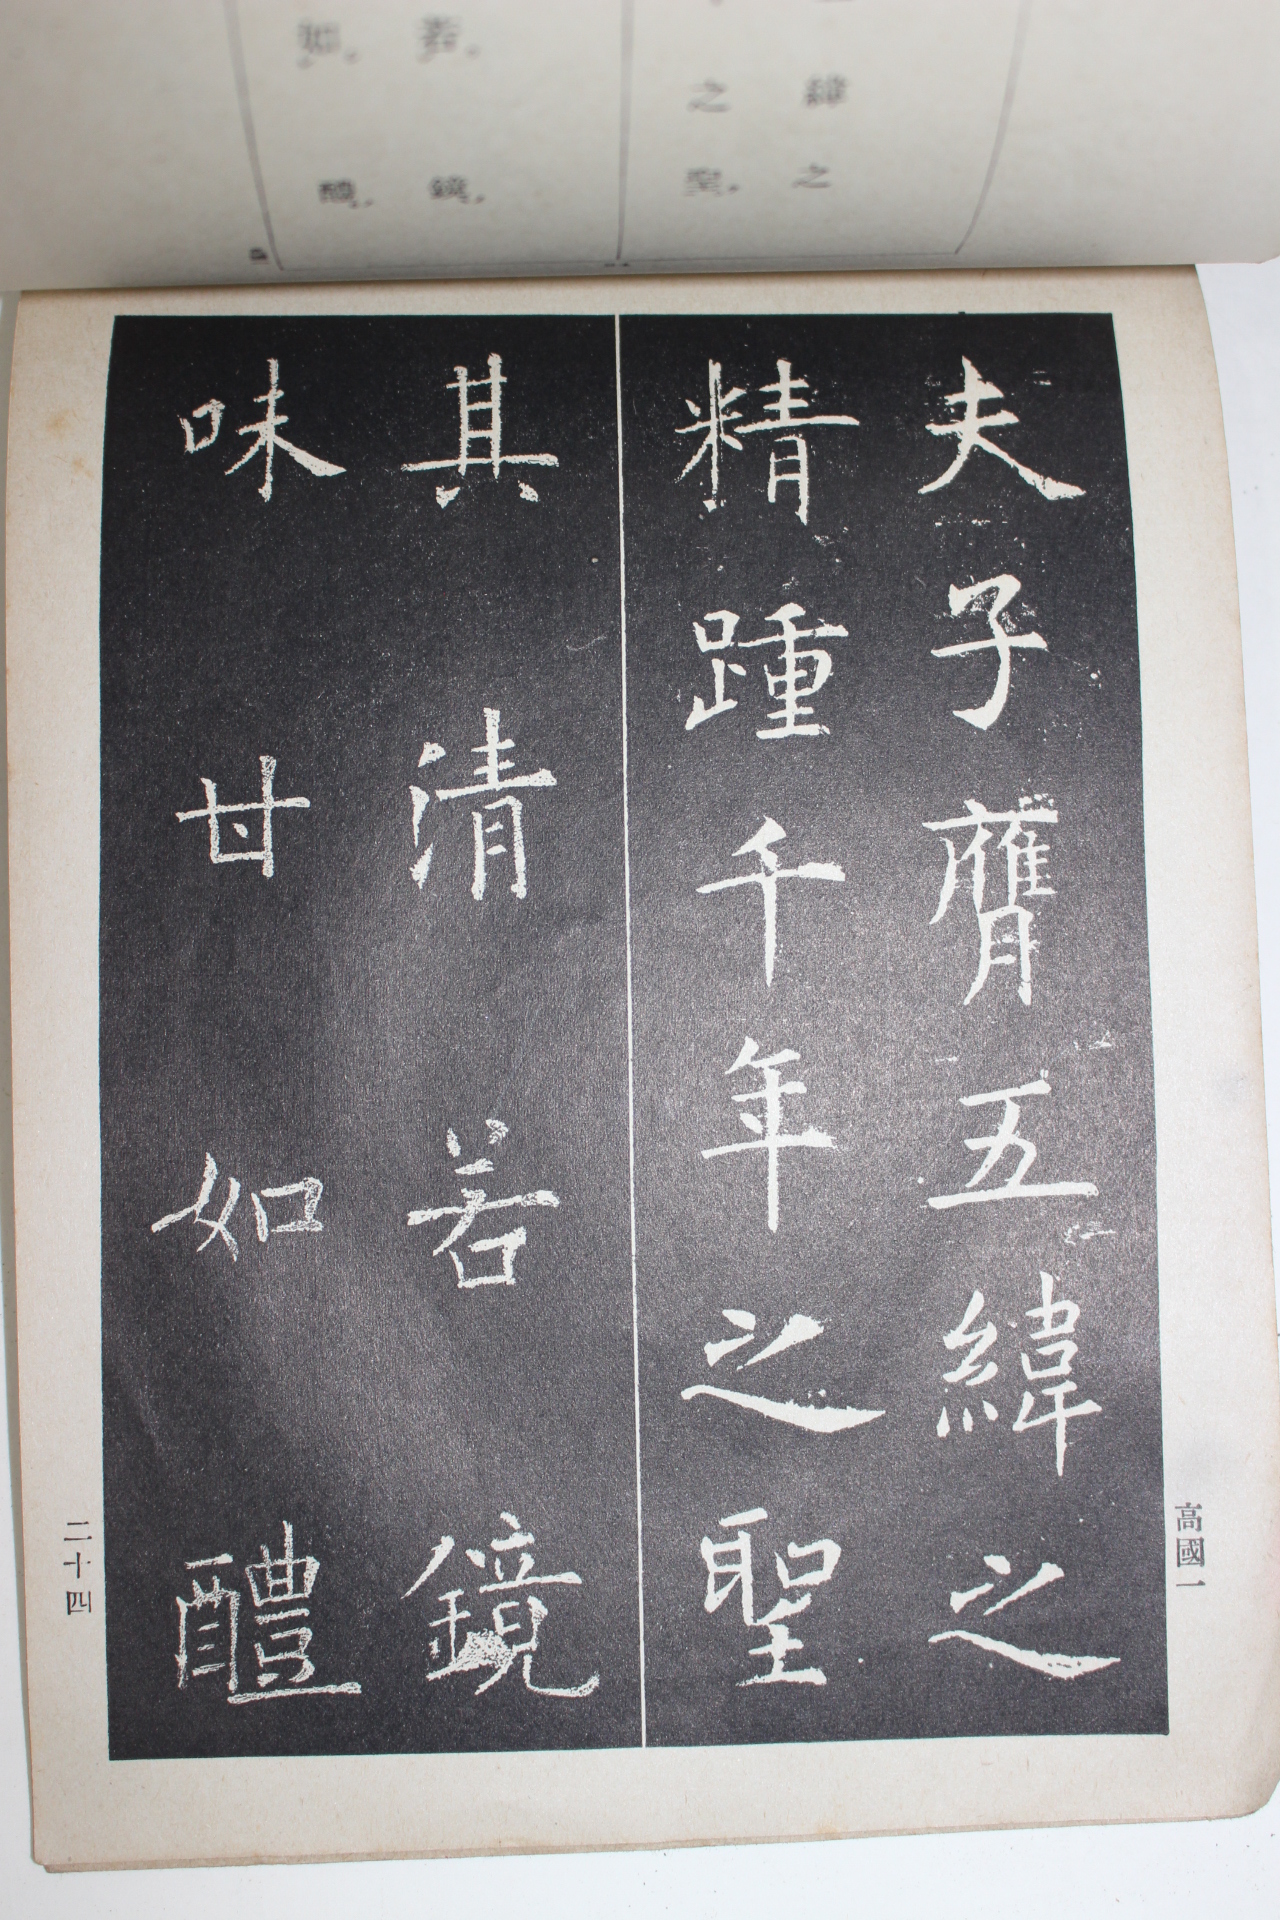 夫子膺五緯之
精踵千年之聖
其清若鏡
味甘如醴
高國一
二十四
緯之
之聖,
若, 鏡,
如, 醴,